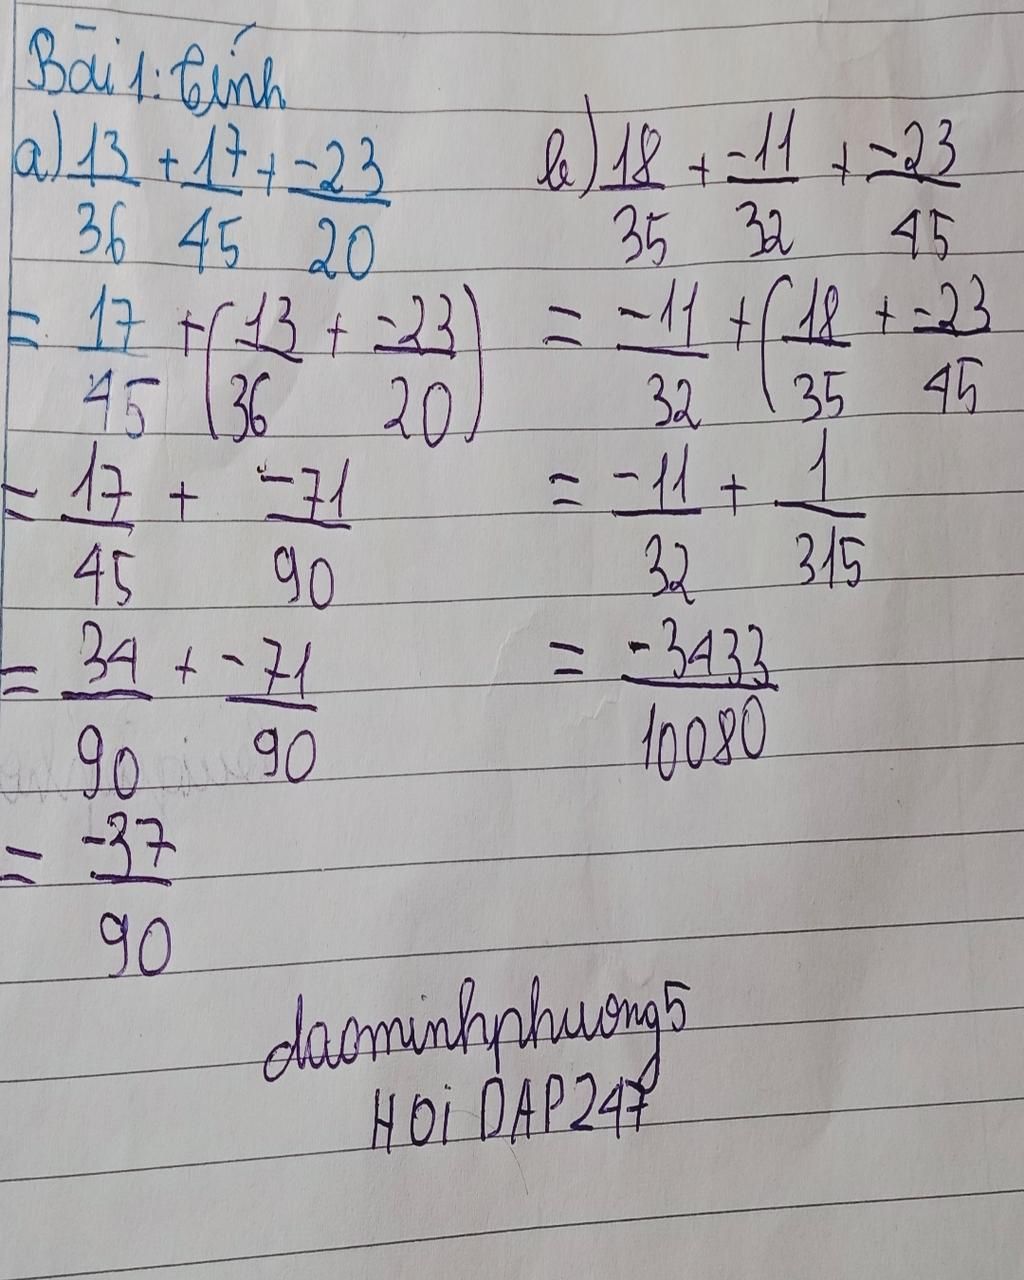 Bài 1: tính
a) 13/36 + 17/45 + -23/20
= 17/45 + (13/36 + -23/20)
= 17/45 + -71/90
= 34/90 + -71/90
= -37/90
b) 18/35 + -11/32 + -23/45
= -11/32 + (18/35 + -23/45
= -11/32 + 1/315
= -3433/10080
daominhphuong5
HOi DAP247